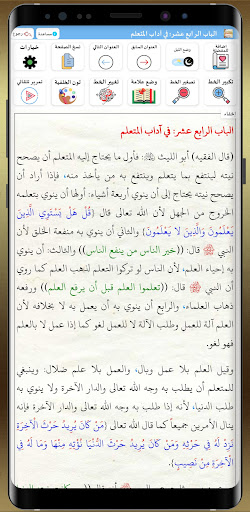 الباب الرابع عشر: في آداب المتعلم
مساعدة
رجوع
إضافة للمفضلة
وضع الليل
العنوان السابق
العنوان التالي
نسخ الصفحة
خيارات
تكبير الخط
تصغير الخط
وضع علامة
تغيير الخط
لون الخلفية
تمرير تلقائي
إخفاء
الباب الرابع عشر: في آداب المتعلم
(قال الفقيه) أبو الليث ﷺ: فأول ما يحتاج إليه المتعلم أن يصحح
نيته لينتفع بما يتعلم وينتفع به من يأخذ منه، فإذا أراد أن
يصحح نيته يحتاج إلى أن ينوي أربعة أشياء: أولها أن ينوي بتعلمه
الخروج من الجهل لأن الله تعالى قال (قُلْ هَلْ يَسْتَوِي الَّذِينَ
يَعْلَمُونَ وَالَّذِينَ لا يَعْلَمُونَ) والثاني أن ينوي به منفعة الخلق لأن
النبي ﷺ قال: ((خير الناس من ينفع الناس)) والثالث: أن ينوي
به إحياء العلم لأن الناس لو تركوا التعلم لذهب العلم كما روي
عن النبي ﷺ قال: ((تعلموا العلم قبل أن يرفع العلم)) ورفعه
ذهاب العلماء، والرابع أن ينوي به أن يعمل به لا بخلافه لأن
العلم آلة للعمل وطلب الآلة لا للعمل لغو كما إذا عمل لا بالعلم
فهو لغو.
وقيل العلم بلا عمل وبال، والعمل بلا علم ضلال، وينبغي
للمتعلم أن يطلب به وجه الله تعالى والدار الآخرة ولا ينوي به
طلب الدنيا، لأنه إذا طلب به وجه الله تعالى والدار الآخرة فإنه
ينال الأمرين جميعاً كما قال الله تعالى (مَنْ كَانَ يُرِيدُ حَرْثَ الْآخِرَةِ
نَزِدْ لَهُ فِي حَرْثِهِ وَمَنْ كَانَ يُرِيدُ حَرْثَ الدُّنْيَا نُؤْتِهِ مِنْهَا وَمَا لَهُ فِي
الْآخِرَةِ مِنْ نَصِيبٍ).